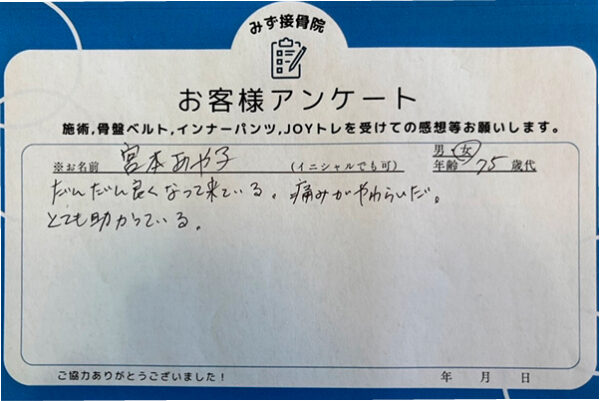 みず接骨院
お客様アンケート
施術,骨盤ベルト,インナーパンツ,JOYトレを受けての感想等お願いします。
※お名前 宮本あや子 (イニシャルでも可) 男・女 年齢 75 歳代
だんだん良くなって来ている。痛みがやわらいだ。
とても助かっている。
ご協力ありがとうございました! 年 月 日